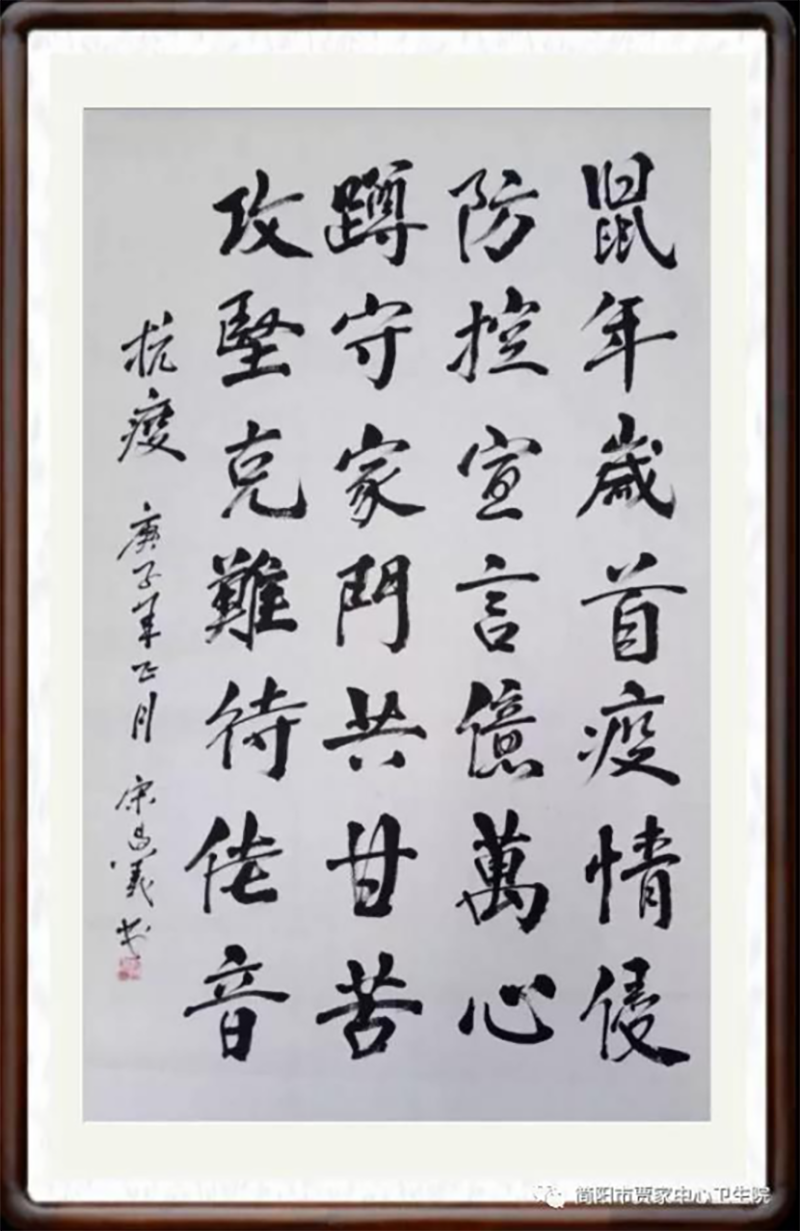 鼠年歲首疫情侵
防控宣言億萬心
蹲守家門共甘苦
攻堅克難待佳音
抗疫 庚子年正月 宋昌義书
简阳市贾家中心卫生院